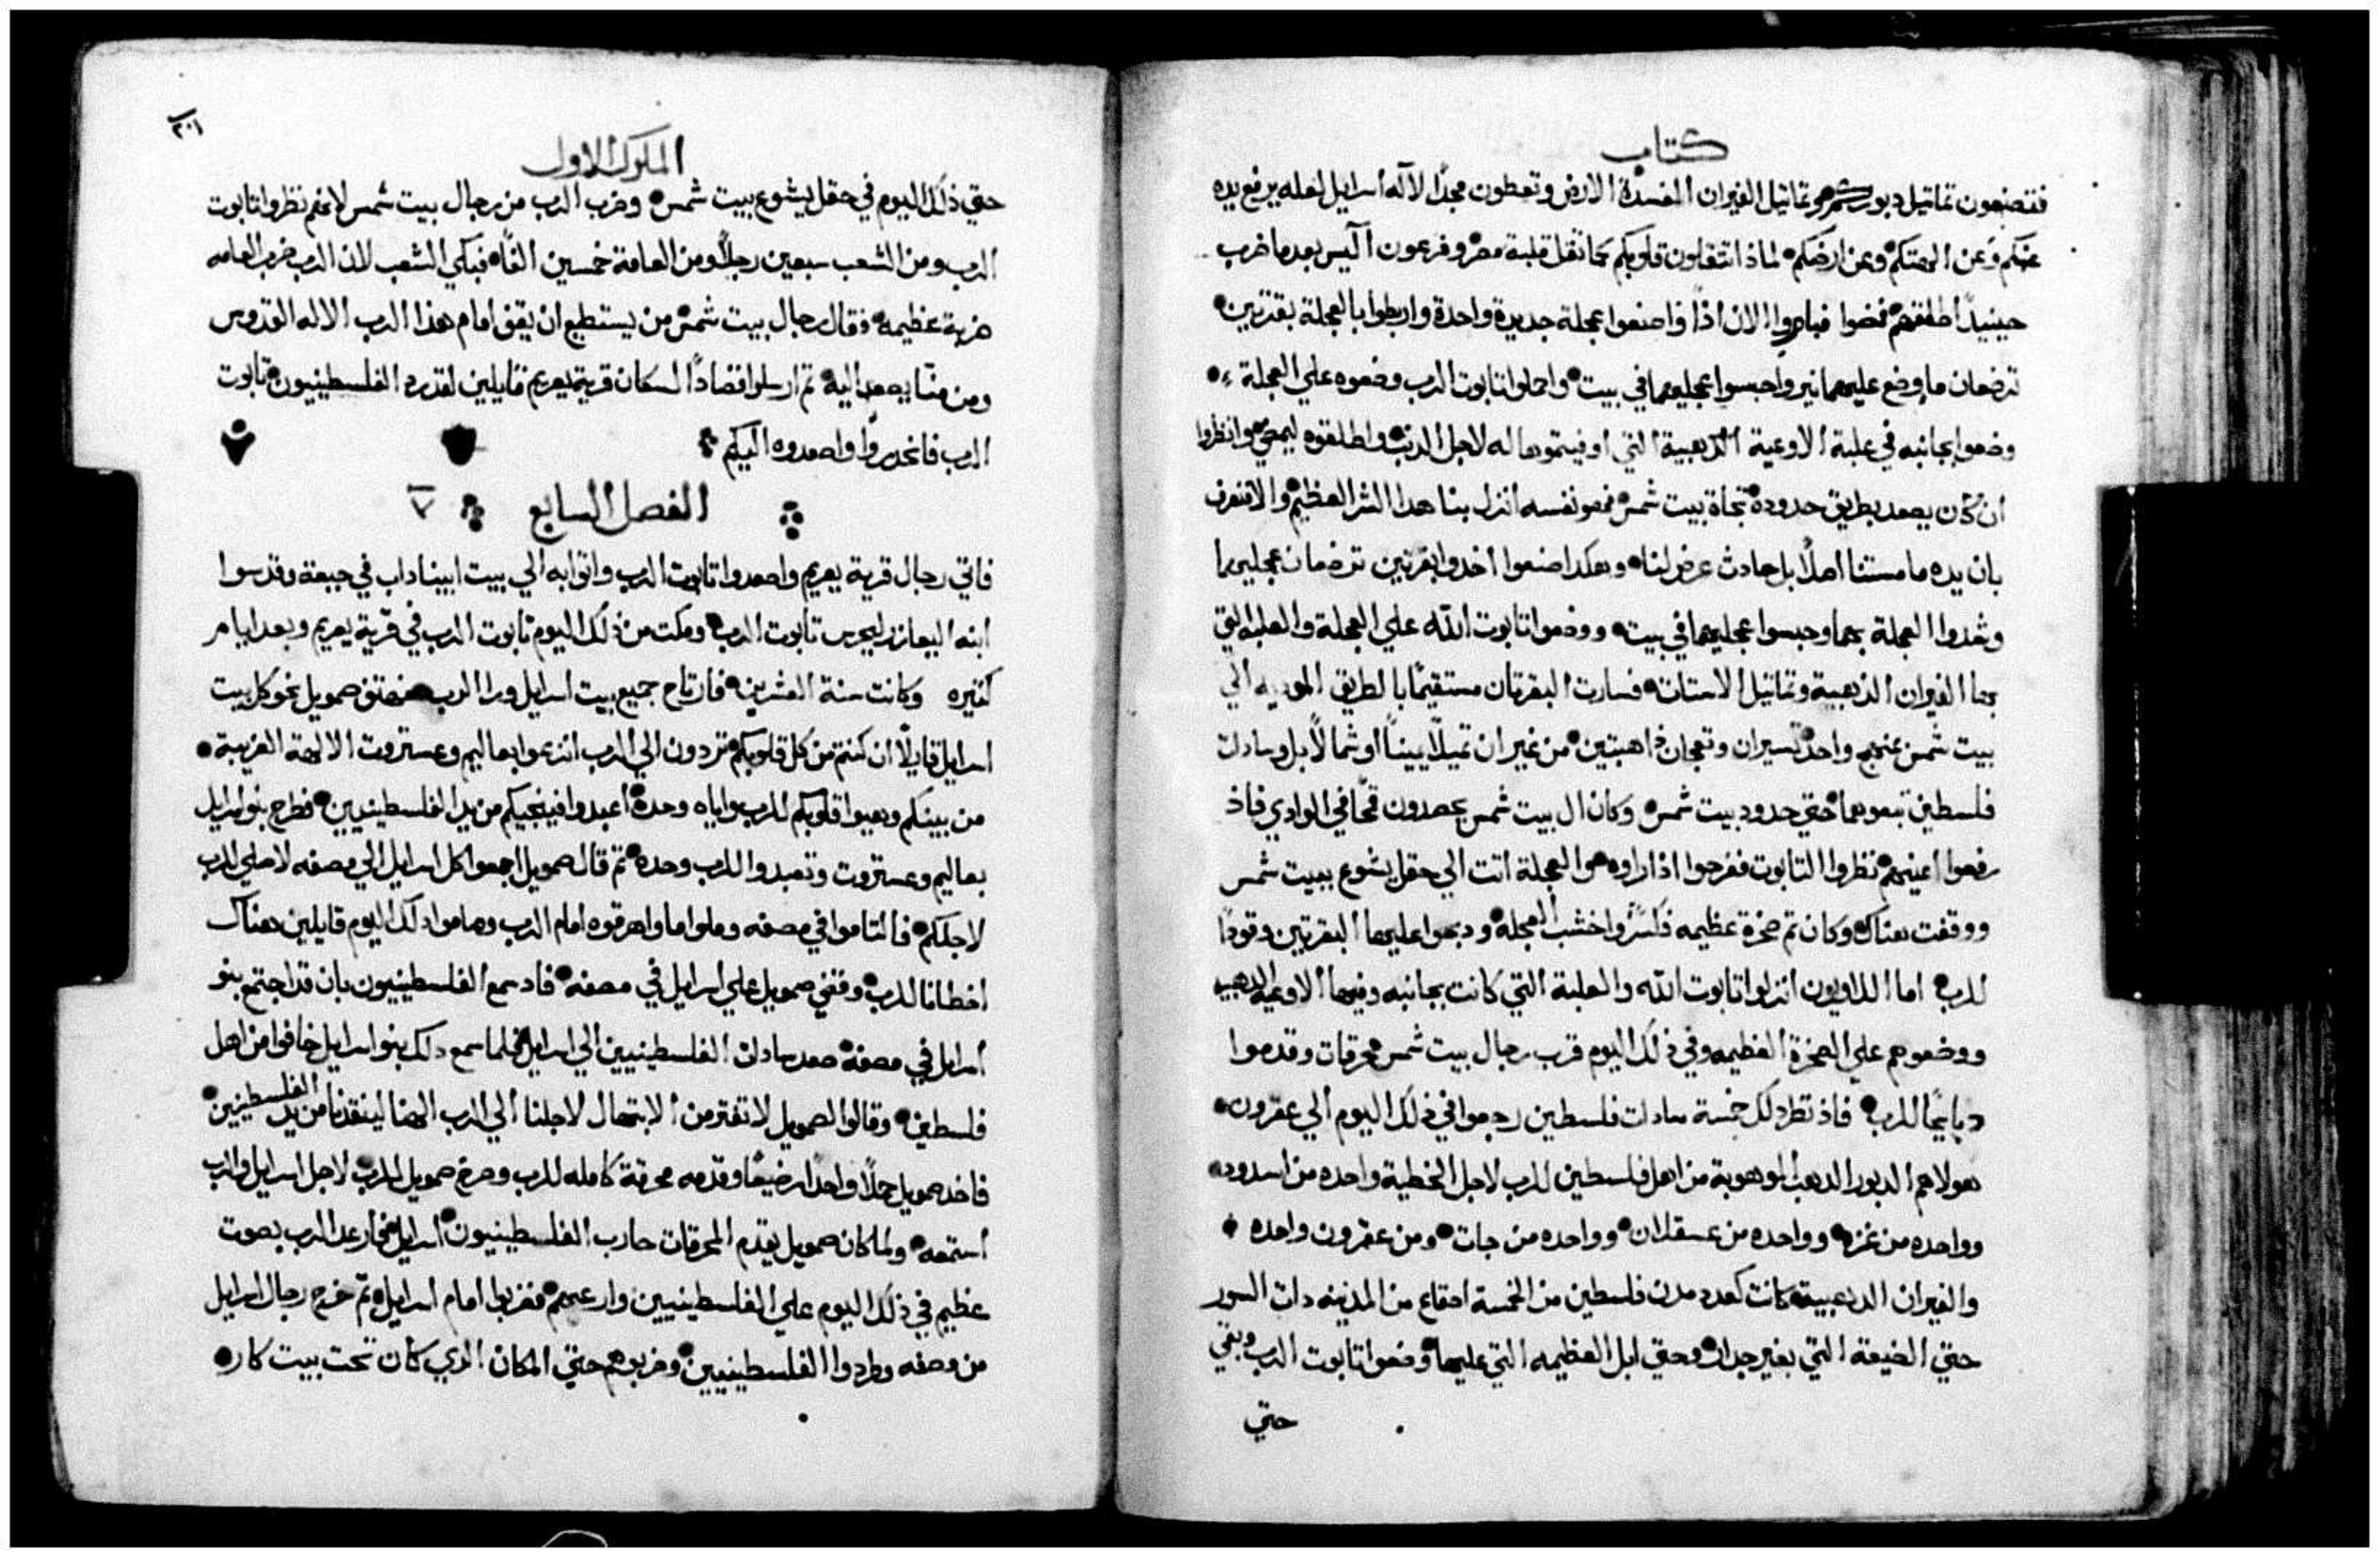 كتاب
فتصنعون تماثيل دبوركم وتماثيل الفيران المفسدة الارض وتعطون مجدًا لاله اسرايل لعله يرفع يده
عنكم وعن الهتكم وعن ارضكم لماذا تثقلون قلوبكم كما ثقل قلبه مصر وفرعون اليس بعدما ضرب
حينيدٍ اطلقهم فمضوا فبادروا الان اذًا واصنعوا عجلة جديدة واحدة واربطوا بالعجلة بقرتين
ترضعان ما وضع عليهما نير واحبسوا عجليهما في بيت واحملوا تابوت الرب وضعوه علي العجلة
وضعوا بجانبه في علبة الاوعية الذهبية التي اوفيتموها له لاجل الذنب واطلقوه ليمضي وانظروا
ان كان يصعد بطريق حدوده تجاة بيت شمس فهو نفسه انزل بنا هدا الشر العظيم والا فنعرف
بان يده ما مستنا اصلًا بل حادث عرض لنا وهكدا صنعوا اخدوا بقرتين ترضعان عجليهما
وشدوا العجلة بهما وحبسوا عجليهما في بيت ووضعوا تابوت الله علي العجلة والعلبه التي
بها الفيران الذهبية وتماثيل الاستات فسارت البقرتان مستقيمًا بالطريق الموديه الي
بيت شمس بمنهج واحد تسيران وتعجان ذاهبتين من غير ان تميلا يمينًا او شمالًا بل وسادات
فلسطين تبعوهما حتي حدود بيت شمس وكان ال بيت شمس يحصدون قمحًا في الوادي فاذ
رفعوا اعينهم نظروا التابوت ففرحوا اذ راوه والعجلة اتت الي حقل يشوع ببيت شمس
ووقفت هناك وكان تم صخرة عظيمه فكسروا خشب العجله ودبحوا عليها البقرتين وقودًا
للرب اما اللاويون انزلوا تابوت الله والعلبة التي كانت بجانبه وفيها الاوعيه الدهبيه
ووضعوهم علي الصخرة العظيمه وفي ذلك اليوم قرب رجال بيت شمس محرقات وقدموا
دبايحًا للرب فاذ نظر دلك خمسة سادات فلسطين رجعوا في ذلك اليوم الي عقرون
هولاهم الدبور الدهب الموهوبة من اهل فلسطين للرب لاجل الخطية واحده من اسدود
وواحده من غزه وواحده من عسقلان وواحده من جات ومن عقرون واحده
والفيران الدهبية كانت كعدد مدن فلسطين من الخمسة اصقاع من المدينه دات السور
حتي الضيعة التي بغير جدار وحتي ابل العظيمه التي عليها وضعوا تابوت الرب وبقي
حتي
الملوك الاول
حتي ذلك اليوم في حقل يشوع بيت شمس وضرب الرب من رجال بيت شمس لانهم نظروا تابوت
الرب ومن الشعب سبعين رجلًا ومن العامة خمسين الفًا فبكي الشعب لان الرب ضرب العامه
ضربة عظيمه فقال رجال بيت شمس من يستطيع ان يقف امام هذا الرب الاله القدوس
ومن منا يصعد اليه تم ارسلوا قصادًا لسكان قرية يعريم قايلين لقد رد الفلسطينيون تابوت
الرب فانحدروا واصعدوه اليكم
الفصل السابع ٧
فاتي رجال قرية يعريم واصعدوا تابوت الرب واتوا به الي بيت ابيناداب في جبعة وقدسوا
ابنه اليعازر ليحرس تابوت الرب ومكت من ذلك اليوم تابوت الرب في قرية يعريم وبعد ايام
كتيره وكانت سنة العشرين فارتاح جميع بيت اسرايل ورا الرب صمويل نحو كل بيت
اسرايل قايلًا ان كنتم من كل قلوبكم تردون الي الرب انزعوا بعاليم وعستروت الالهة الغريبة
من بينكم وهيوا قلوبكم للرب واياه وحدة اعبدوا فينجيكم من يد الفلسطينيين فطرح بنو اسرايل
بعاليم وعستروت وتعبدوا للرب وحده تم قال صمويل اجمعوا كل اسرايل الي مصفه لاصلي للرب
لاجلكم فالتاموا في مصفه وملوا ما واهرقوه امام الرب وصاموا دلك اليوم قايلين هناك
اخطانا للرب وقضي صمويل علي اسرايل في مصفه فاد سمع الفلسطينيون بان قد اجتمع بنو
اسرايل في مصفة صعد سادات الفلسطينيين الي اسرايل فلما سمع دلك بنو اسرايل خافوا من اهل
فلسطين وقالوا لصمويل لا تفتر من الابتهال لاجلنا الي الرب الهنا لينقدنا من يد الفلسطينين
فاخد صمويل حملًا واحدًا رضيعًا وقدمه محرقة كامله للرب وصرخ صمويل للرب لاجل اسرايل والرب
استمعه ولما كان صمويل يقدم المحرقات حارب الفلسطينيون اسرايل فارعد الرب بصوت
عظيم في ذلك اليوم علي الفلسطينيين وارعبهم فضربوا امام اسرايل تم خرج رجال اسرايل
من مصفه وطردوا الفلسطينيين وضربوهم حتي المكان الدي كان تحت بيت كار